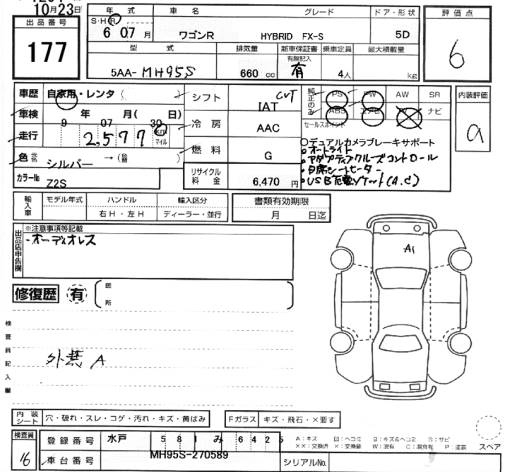 10月23日
出品番号
177
年式 車名 グレード ドア・形状
S・H・R
6 07月 ワゴンR HYBRID FX-S 5D
型式 排気量 新車保証書 乗車定員 最大積載量
有無記入
5AA-MH95S 660 cc 有 4人 kg
評価点
6
車歴 自家用・レンタ
車検 年 月(日)
9 07 30
走行 2,577 km マイル
色 シルバー
カラーNo Z2S
シフト CVT
IAT
冷房 AAC
燃料 G
リサイクル料金 6,470円
純正のみ PS PW AW SR
ABS ナビ
セールスポイント
デュアルカメラブレーキサポート
オートライト
アダプティブクルーズコントロール
USB電源ソケット(A,C)
内装評価
a
輸入車 モデル年式 ハンドル 輸入区分
右H・左H ディーラー・並行
書類有効期限
月 日迄
出品店申告欄
※注意事項等記載
・オーディオレス
修復歴 有
箇所
検査員記入欄
外装 A
A1
内装シート 穴・破れ・スレ・コゲ・汚れ・キズ・黄ばみ
Fガラス キズ・飛石・×要す
検査員
16
登録番号 水戸 581 み 6425
車台番号 MH95S-270589
シリアルNo.
A:キズ
スペア